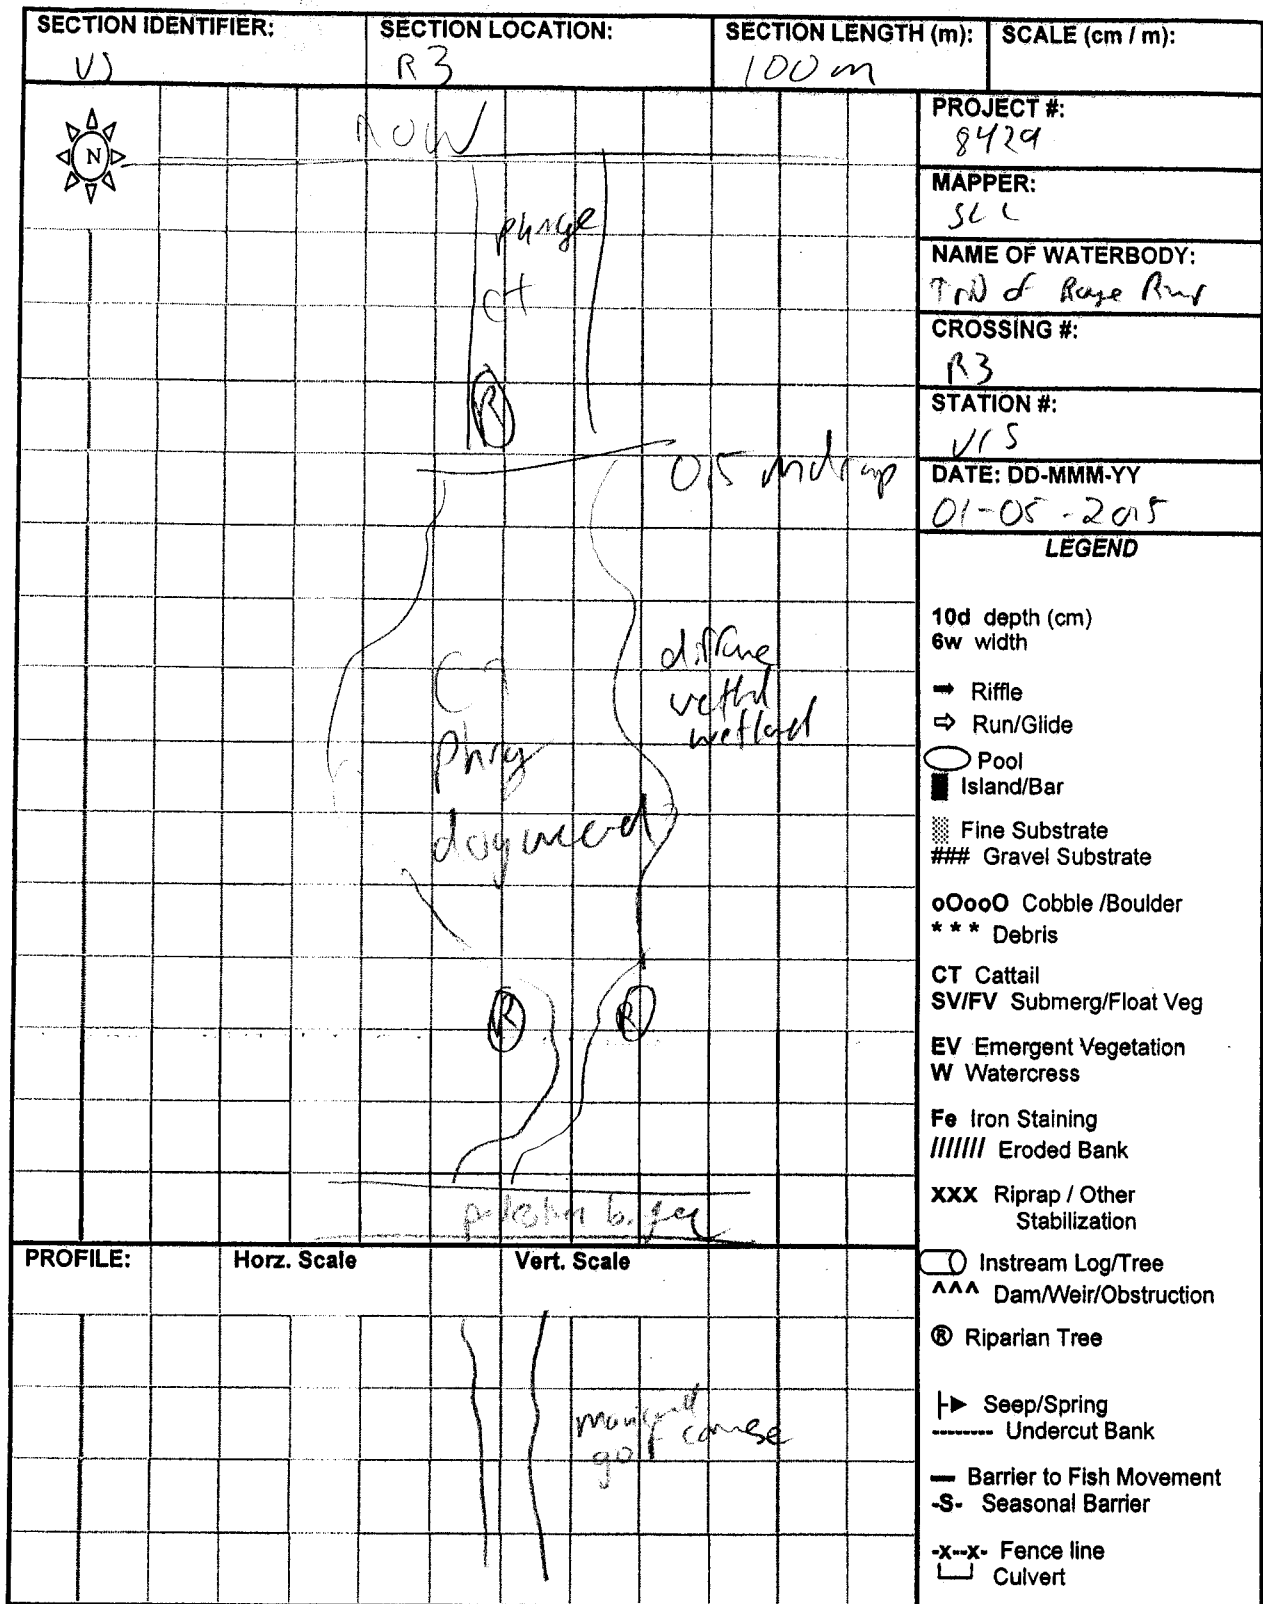 SECTION IDENTIFIER:
SECTION LOCATION:
R3
SECTION LENGTH (m):
100 m
SCALE (cm / m):
PROJECT #:
8429
MAPPER:
NAME OF WATERBODY:
Trib of Rouge River
CROSSING #:
R3
STATION #:
DATE: DD-MMM-YY
01-05-2015
LEGEND
10d depth (cm)
6w width
Riffle
Run/Glide
Pool
Island/Bar
Fine Substrate
### Gravel Substrate
oOooO Cobble /Boulder
* * * Debris
CT Cattail
SV/FV Submerg/Float Veg
EV Emergent Vegetation
W Watercress
Fe Iron Staining
/////// Eroded Bank
XXX Riprap / Other
Stabilization
Instream Log/Tree
^^^ Dam/Weir/Obstruction
® Riparian Tree
Seep/Spring
-------- Undercut Bank
Barrier to Fish Movement
-S- Seasonal Barrier
-x--x- Fence line
Culvert
N
ROW
CT
R
0.5 m drop
CT
phrag
dogwood
wetland
R
R
PROFILE:
Horz. Scale
Vert. Scale
golf course